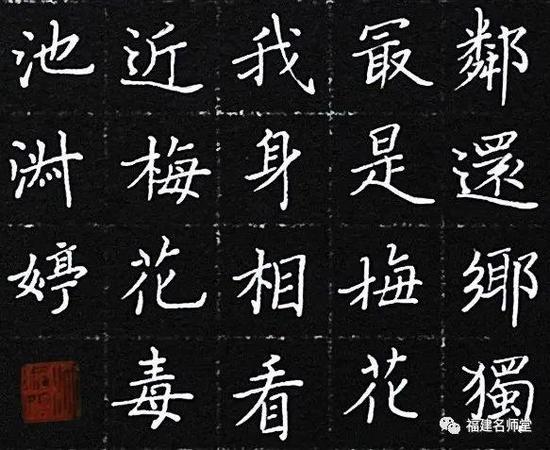 鄰還鄉獨
最是梅花
我身相看
近梅花毒
池婷
福建名师堂